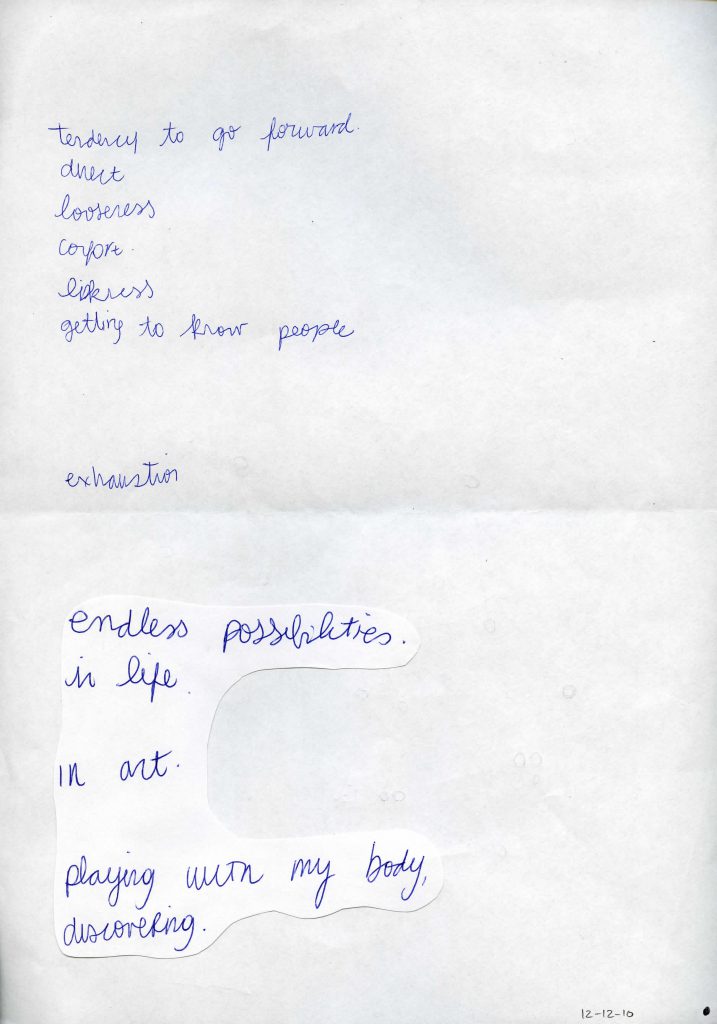 tendency to go forward.
direct
looseness
comfort.
getting to know people
exhaustion
endless possibilities.
in life.
in art.
playing with my body,
discovering.
12-12-10